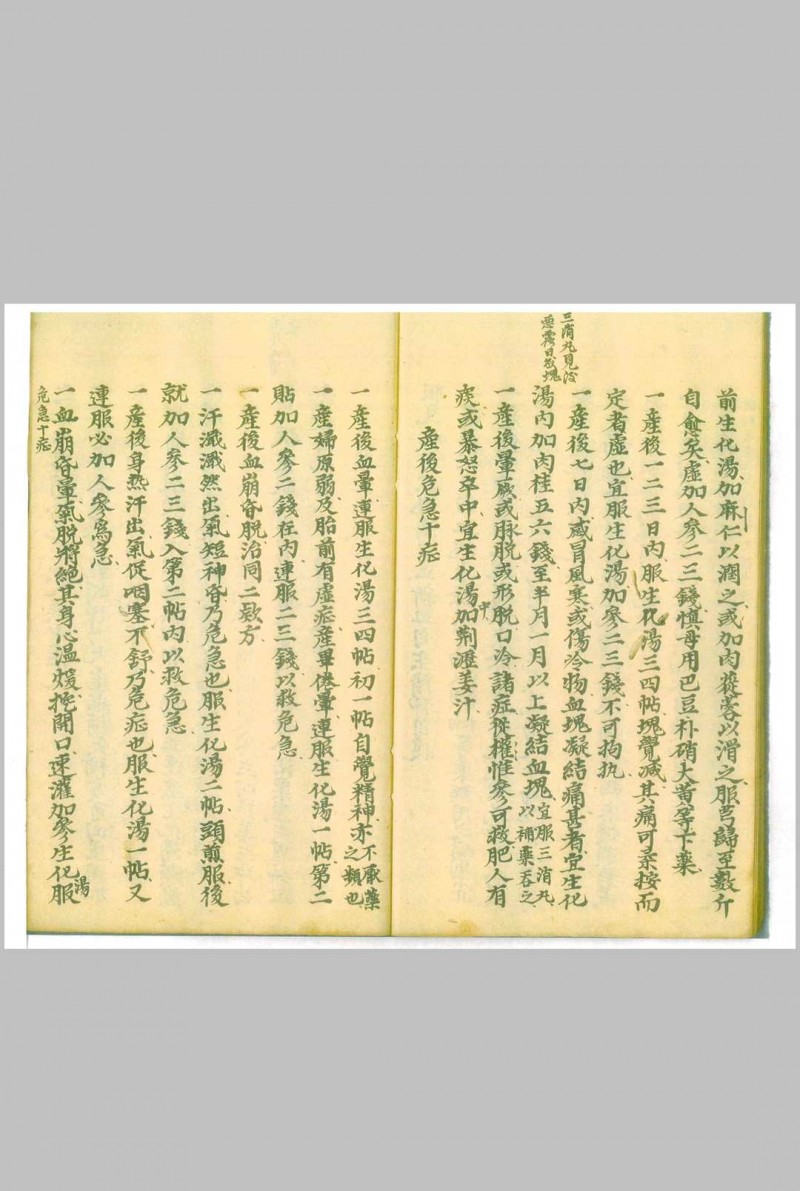 前生化湯加麻仁以潤之或加肉蓯蓉以滑之服芎歸至數斤
自愈矣虛加人參二三錢慎毋用巴豆朴硝大黃等下藥
一產後一二三日內服生化湯三四帖塊覺減其痛可柔按而
定者虛也宜服生化湯加參二三錢不可拘执
三消丸見治
惡露日久塊
一產後七日內感冒風寒或傷冷物血塊凝結痛甚者宜生化
湯內加肉桂五六錢至半月一月以上凝結血塊宜服三消丸以補藥吞之
一產後暈厥或脉脫或形脫口冷諸症從權惟參可救肥人有
痰或暴怒卒中宜生化湯中加荆瀝姜汁
產後危急十症
一產後血暈連服生化湯三四帖初一帖自覺精神亦不厭藥之類也
一產婦原弱及胎前有虛症產畢倦暈連服生化湯一帖第二
貼加人參二錢在內連服二三錢以救危急
一產後血崩昏脫治同二欵方
一汗濈濈然出氣短神昏乃危急也服生化湯二帖頭煎服後
就加人參二三錢入第二帖內以救危急
一產後身熱汗出氣促咽塞不舒乃危症也服生化湯一帖又
連服必加人參爲急
一血崩昏暈氣脫將絕其身心温煖挖開口速灌加參生化湯服
危急十症